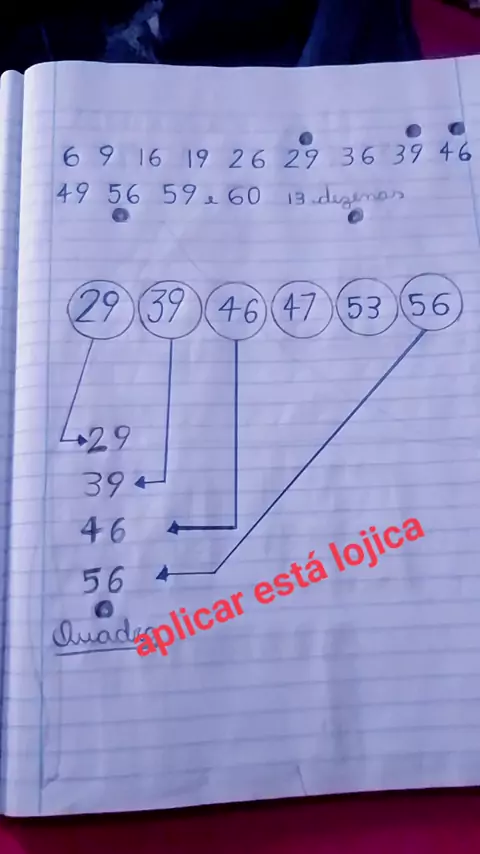 6 9 16 19 26 29 36 39 46
49 56 59 e 60 13 dezenas
29 39 46 47 53 56
29
39
46
56
Quadra
aplicar está lojica